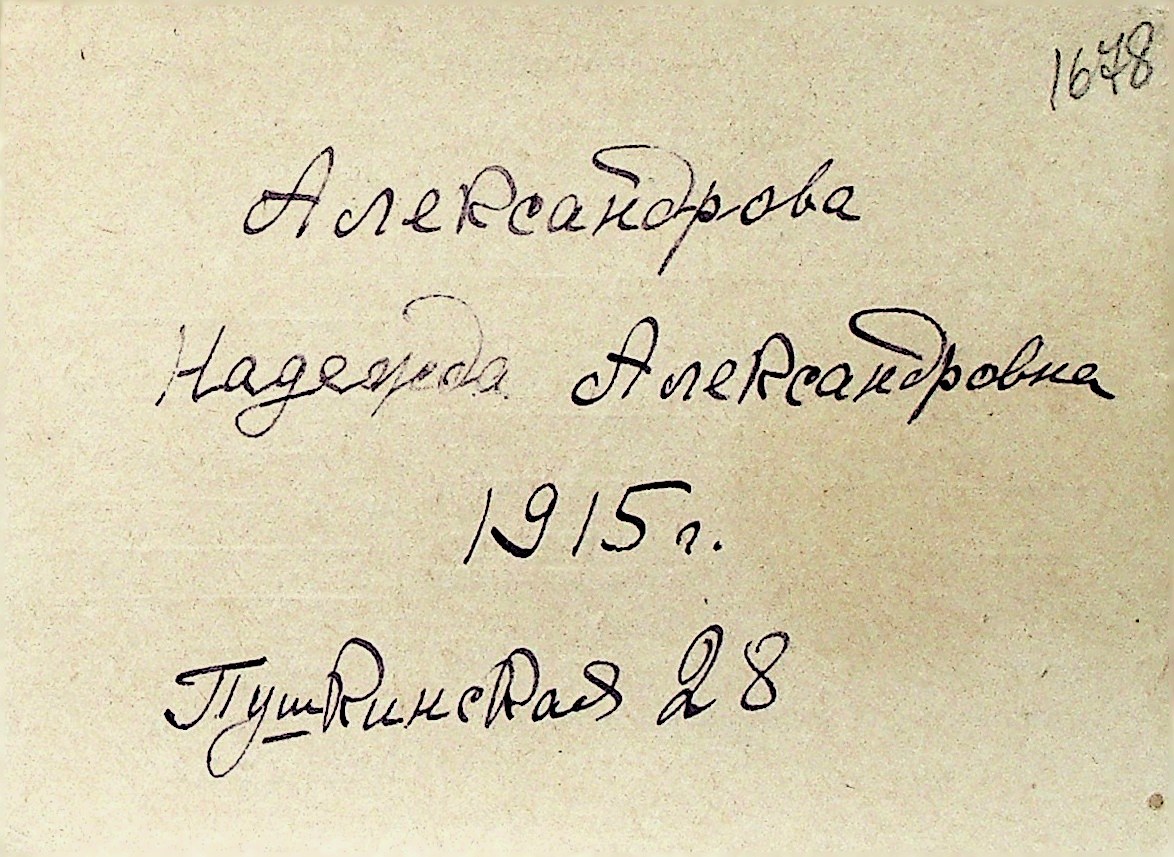 1678
Александрова
Надежда Александровна
1915 г.
Пушкинская 28